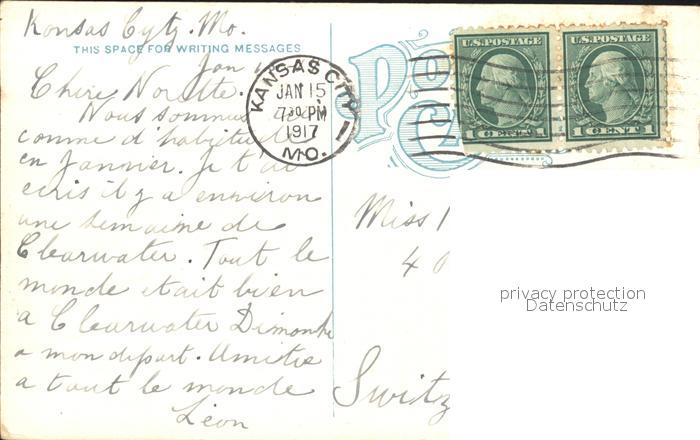 Kansas City. Mo.
THIS SPACE FOR WRITING MESSAGES
Jan
Chère Norette.
Nous sommes
comme d'habitude
en Janvier. Je t'ai
ecris il y a environ
une semaine de
Clearwater. Tout le
monde etait bien
a Clearwater Dimanche
a mon depart. Amitie
a tout le monde
Léon
KANSAS CITY
JAN 15
730 PM
1917
MO.
U.S. POSTAGE
1 CENT 1
U.S. POSTAGE
1 CENT 1
Miss
40
privacy protection
Datenschutz
Switz